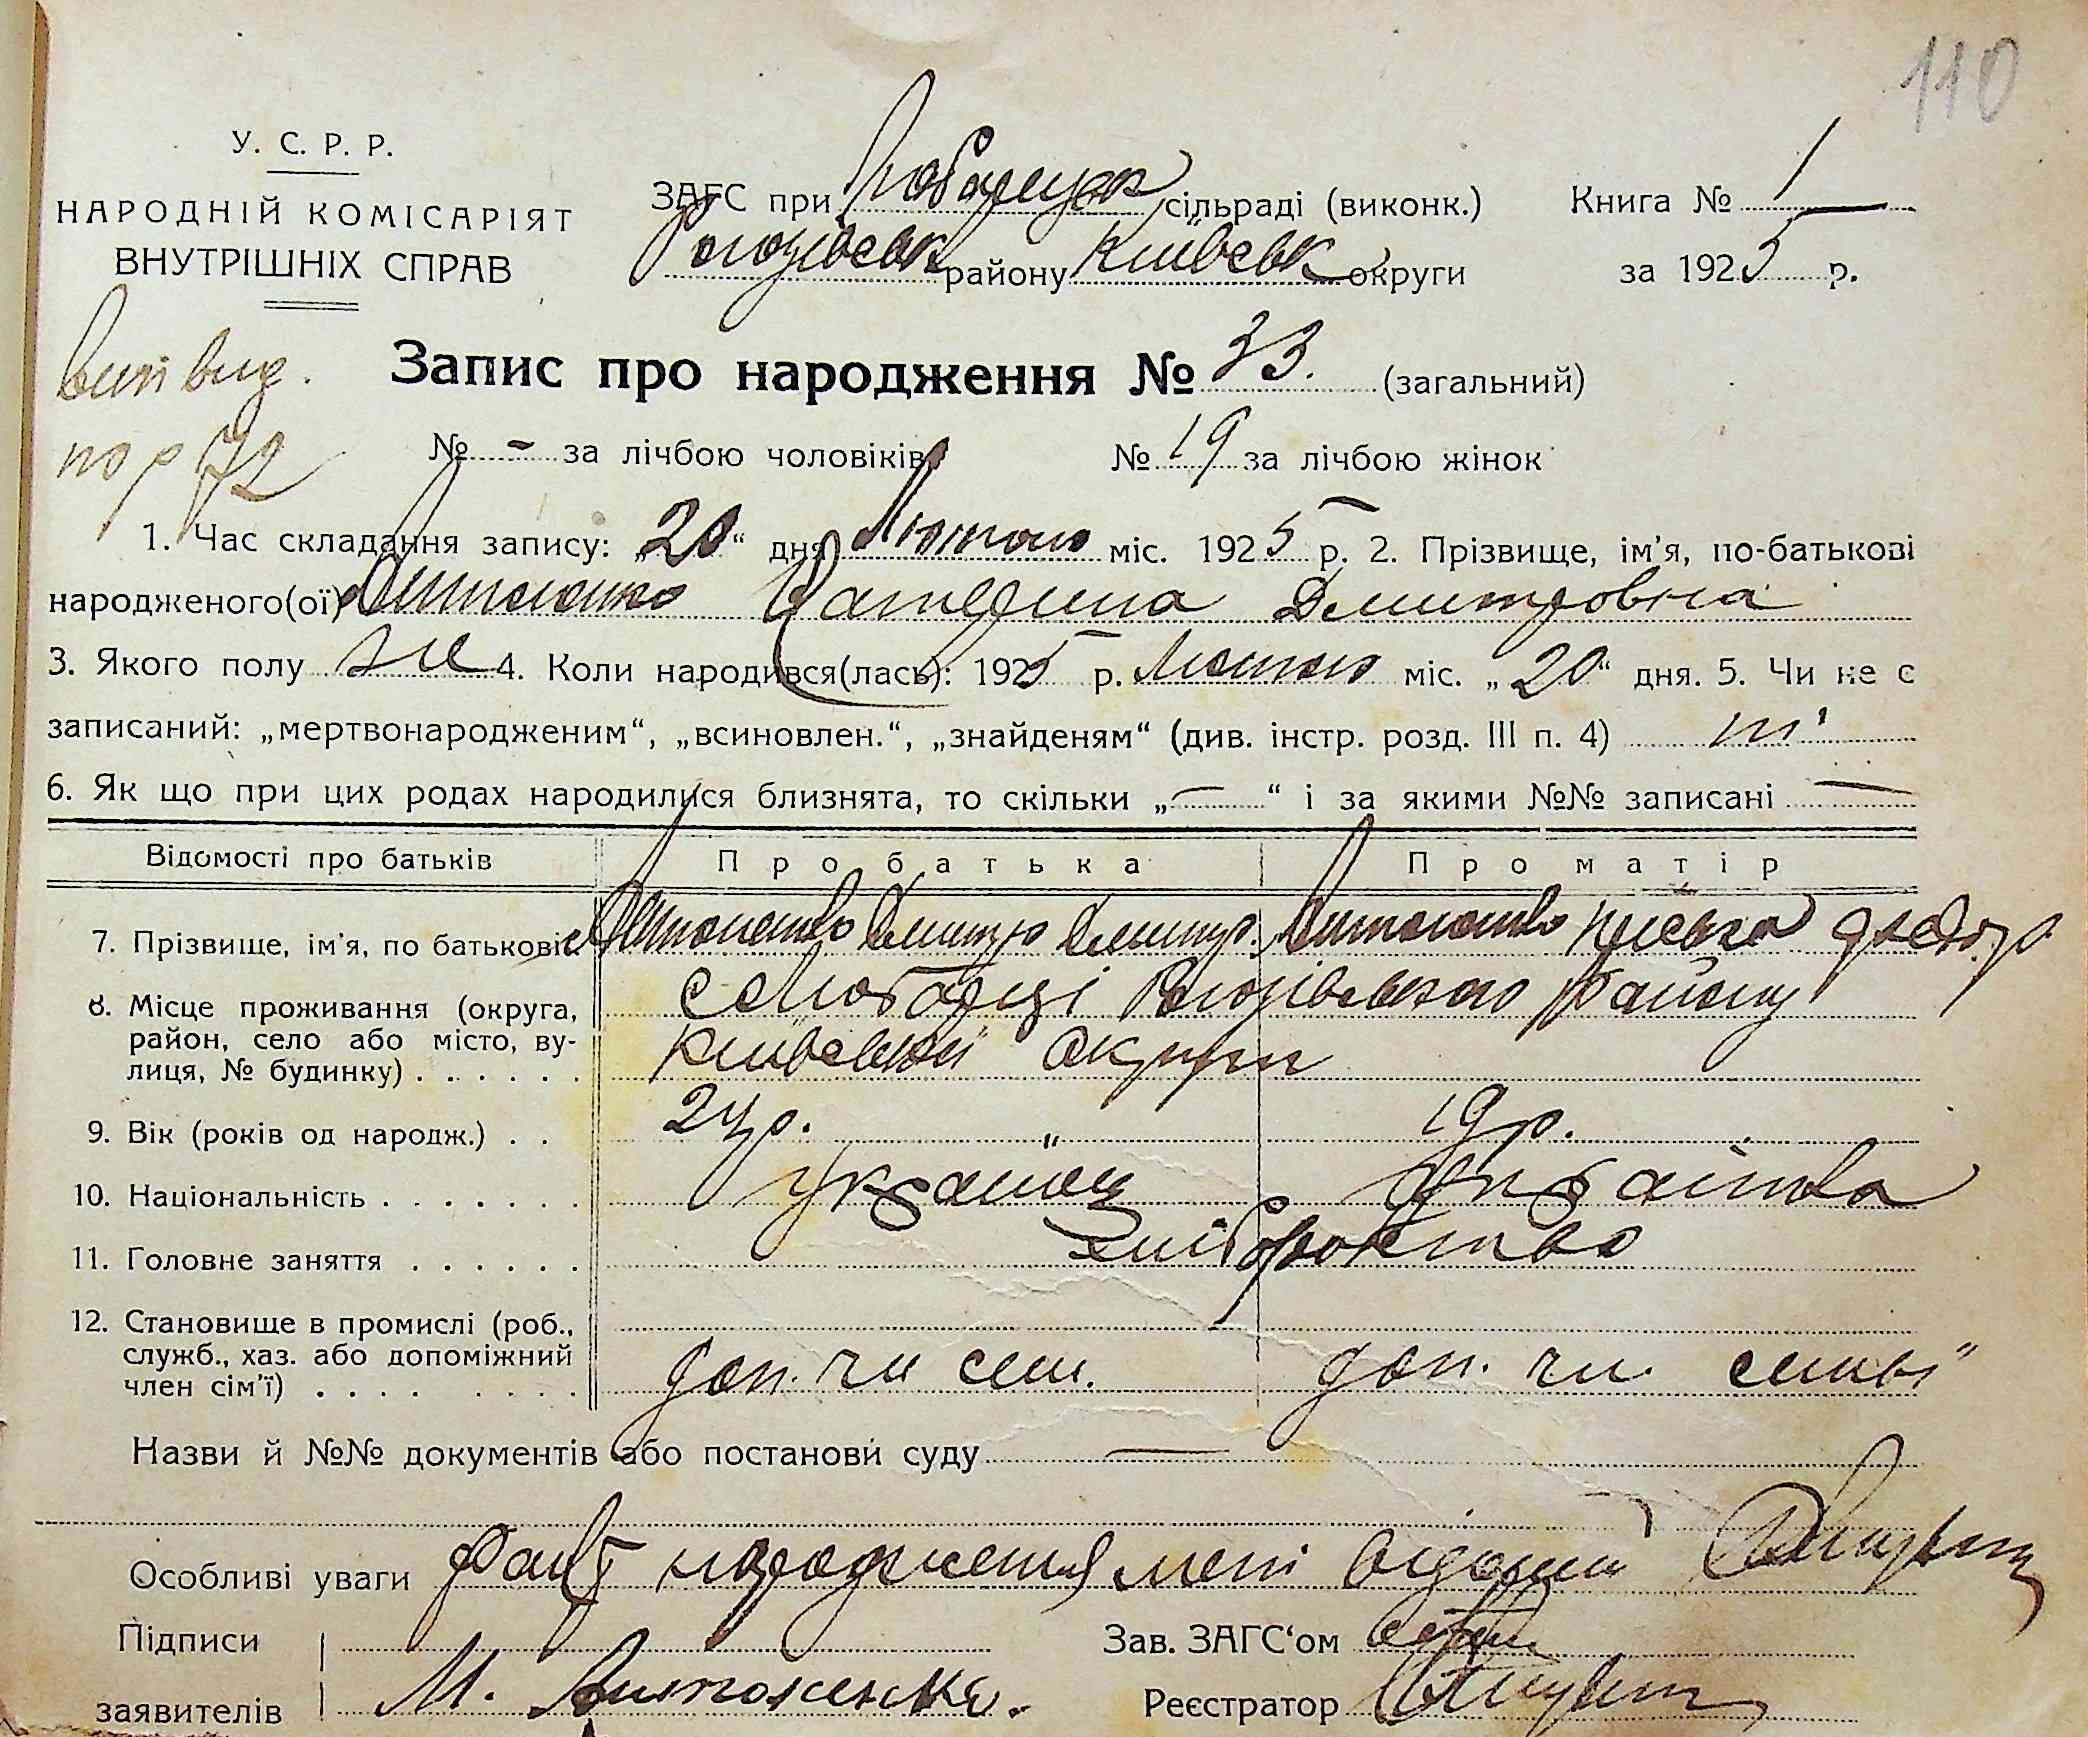 110
У. С. Р. Р.
НАРОДНІЙ КОМІСАРІЯТ
ВНУТРІШНІХ СПРАВ
ЗАГС при Любарецк сільраді (виконк.)
Рогозівськ району Київськ округи
Книга № 1
за 1925 р.
вип вид.
Запис про народження № 33. (загальний)
по р 72
№ - за лічбою чоловіків
№ 19 за лічбою жінок
1. Час складання запису: „20“ дня Лютого міс. 1925 р. 2. Прізвище, ім’я, по-батькові
народженого(ої) Антоненко Катерина Дмитровна
3. Якого полу же 4. Коли народився(лась): 1925 р. Лютого міс. „20“ дня. 5. Чи не є
записаний: „мертвонародженим“, „всиновлен.“, „знайденям“ (див. інстр. розд. III п. 4) ні
6. Як що при цих родах народилися близнята, то скільки „—“ і за якими №№ записані —
Відомості про батьків Про батька Про матір
7. Прізвище, ім’я, по батькові Антоненко Дмитро Дмитр. Антоненко
8. Місце проживання (округа, с Любарці Рогозівського району
район, село або місто, ву- Київської округи
лиця, № будинку) . . . . . .
9. Вік (років од народж.) . . 24 р. " 19 р.
10. Національність . . . . . . . українец українка
11. Головне заняття . . . . . . хліборобство
12. Становище в промислі (роб.,
служб., хаз. або допоміжний доп. чл сем. доп. чл. семьї
член сім’ї) . . . . . . . . .
Назви й №№ документів або постанови суду —
Особливі уваги Факт народження мені відомий
Підписи
Зав. ЗАГС‘ом
заявителів М. Антоненко.
Реєстратор